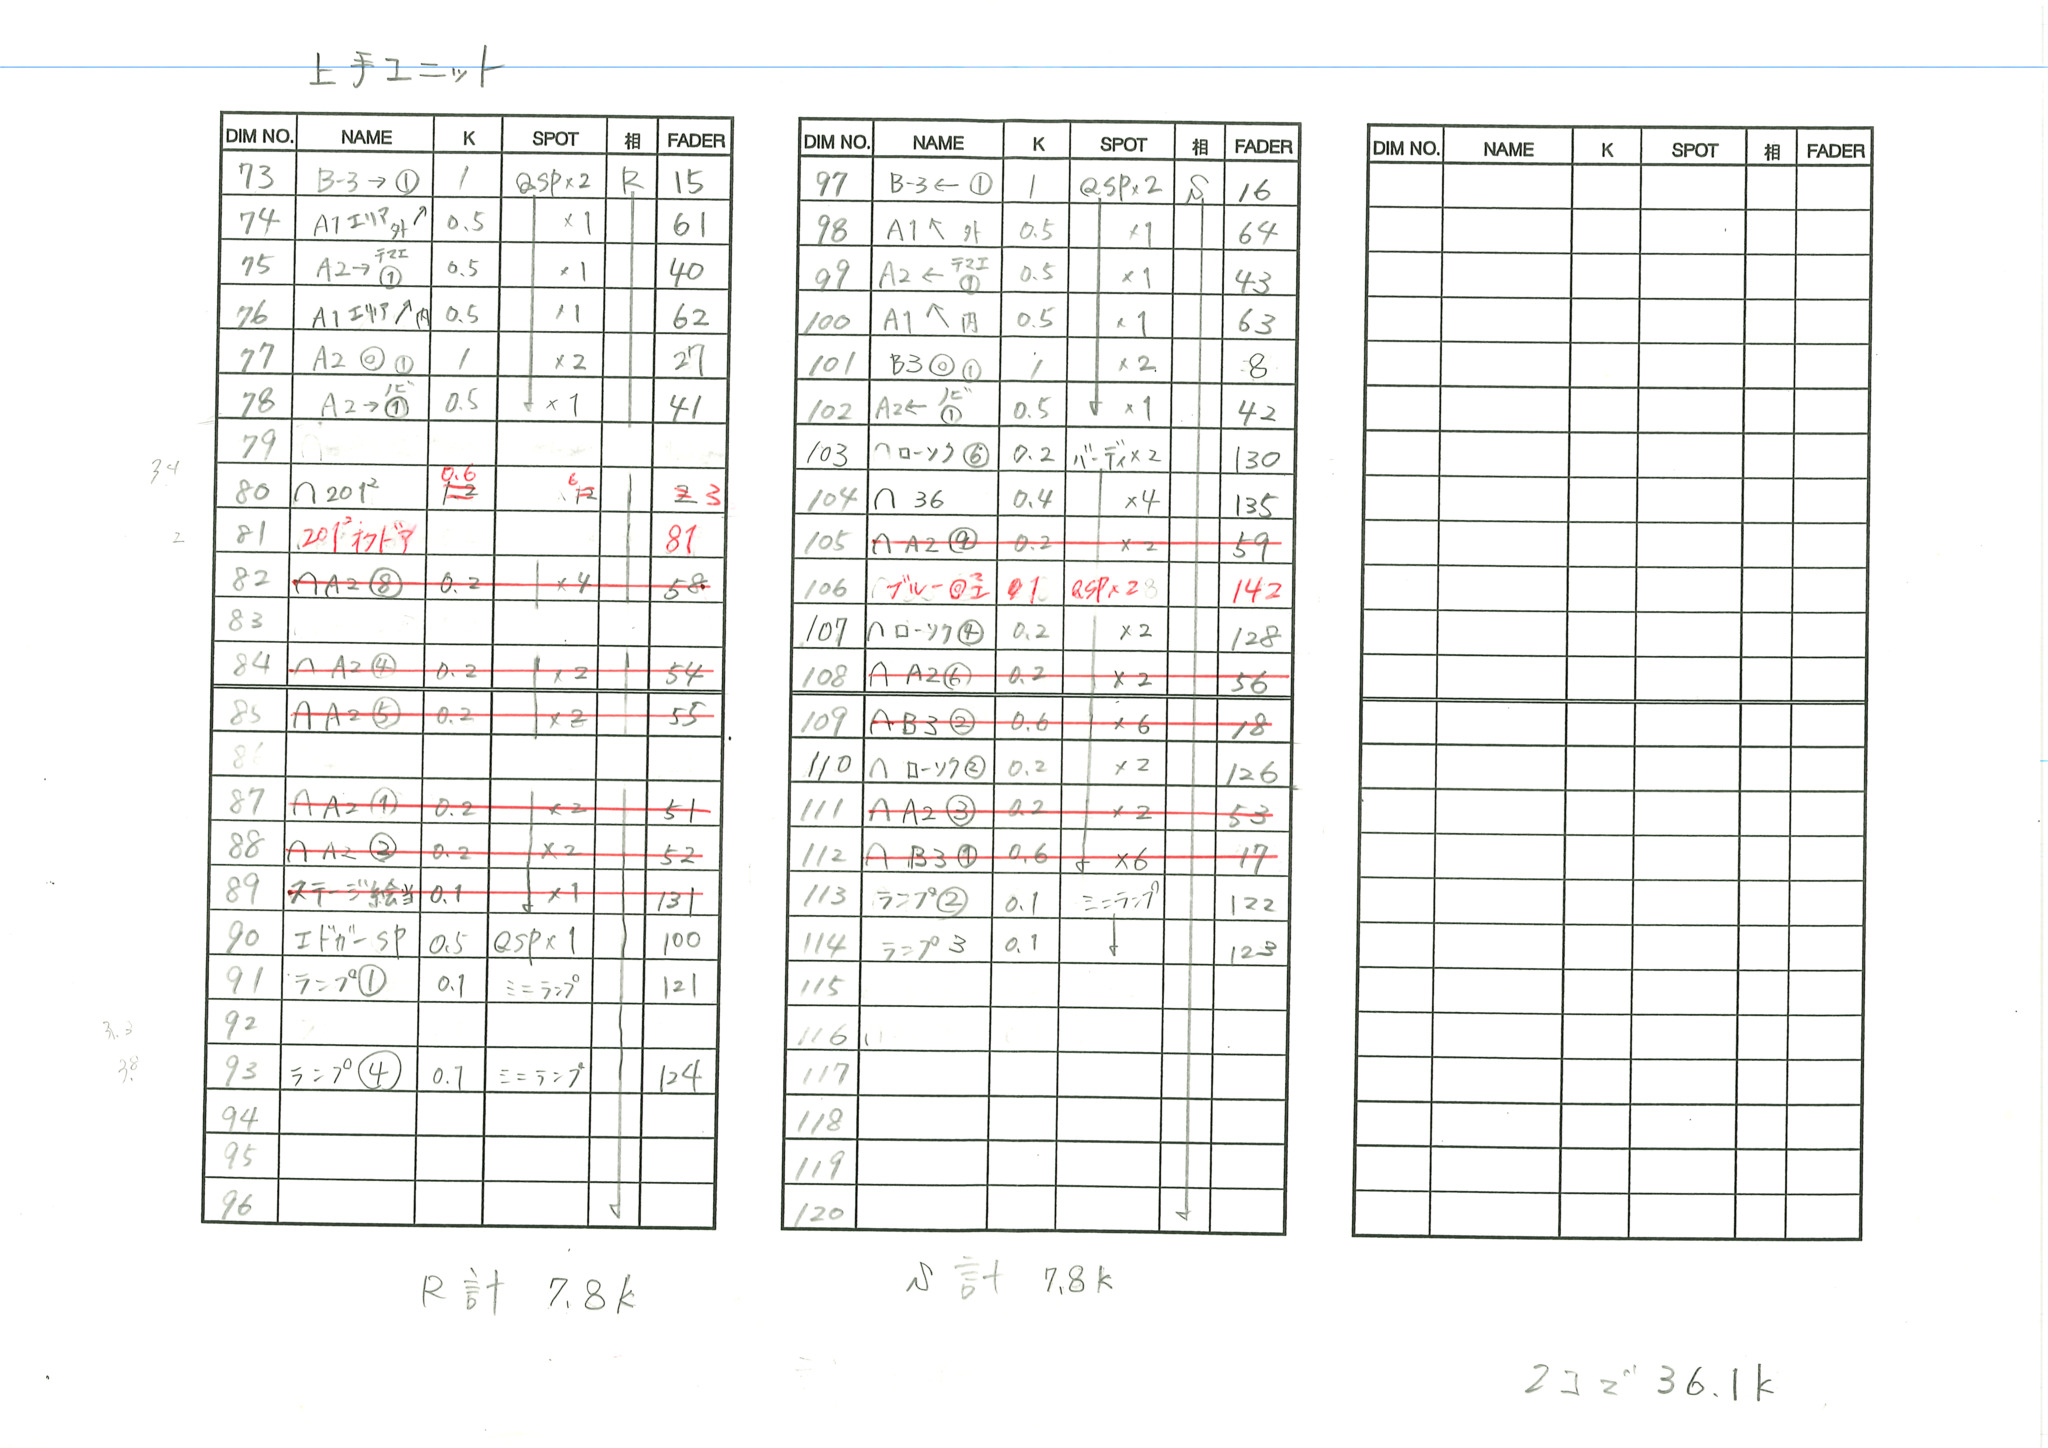 上手ユニット
DIM NO. NAME K SPOT 相 FADER
73 B-3→① 1 QSP×2 R 15
74 A1エリア外↗ 0.5 ×1 61
75 A2→テマエ① 0.5 ×1 40
76 A1エリア↗内 0.5 〃1 62
77 A2◎① 1 ×2 27
78 A2→ノビ① 0.5 ×1 41
79
80 ∩ 201² 0.6 1.2 6 12 2 3
81 201² 81
82 ∩ A2⑧ 0.2 ×4 58
83
84 ∩ A2④ 0.2 ×2 54
85 ∩ A2⑤ 0.2 ×2 55
86
87 ∩ A2① 0.2 ×2 51
88 ∩ A2② 0.2 ×2 52
89 ステージ絵当 0.1 ×1 131
90 エドガーSP 0.5 QSP×1 100
91 ランプ① 0.1 ミニランプ 121
92
93 ランプ④ 0.1 ミニランプ 124
94
95
96
R 計 7.8k
DIM NO. NAME K SPOT 相 FADER
97 B-3←① 1 QSP×2 S 16
98 A1↖外 0.5 ×1 64
99 A2←テマエ① 0.5 ×1 43
100 A1↖内 0.5 ×1 63
101 B3◎① 1 ×2 8
102 A2←ノビ① 0.5 ×1 42
103 ∩ローソク⑥ 0.2 バーディ×2 130
104 ∩ 36 0.4 ×4 135
105 ∩ A2⑨ 0.2 ×2 59
106 ブルー◎ 1 QSP×2 142
107 ∩ローソク④ 0.2 ×2 128
108 ∩ A2⑥ 0.2 ×2 56
109 ∩ B3② 0.6 ×6 18
110 ∩ローソク② 0.2 ×2 126
111 ∩ A2③ 0.2 ×2 53
112 ∩ B3① 0.6 ×6 17
113 ランプ② 0.1 ミニランプ 122
114 ランプ3 0.1 123
115
116
117
118
119
120
S 計 7.8k
DIM NO. NAME K SPOT 相 FADER
2コで 36.1k